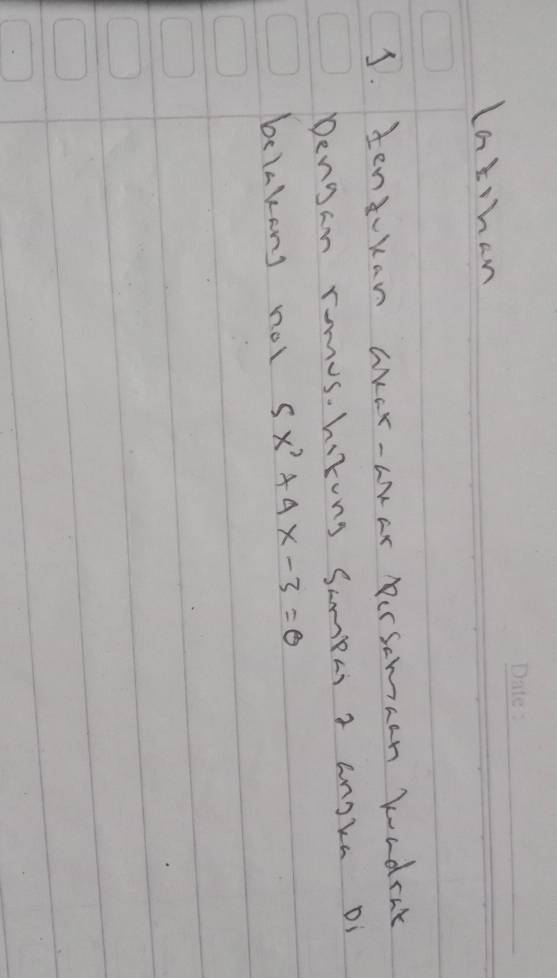 Date:
Latihan
1. tentukan akar-akar persamaan kuadrat
Dengan rumus. hitung sampai 2 angka Di
belakang nol 5x² + 4x - 3 = 0